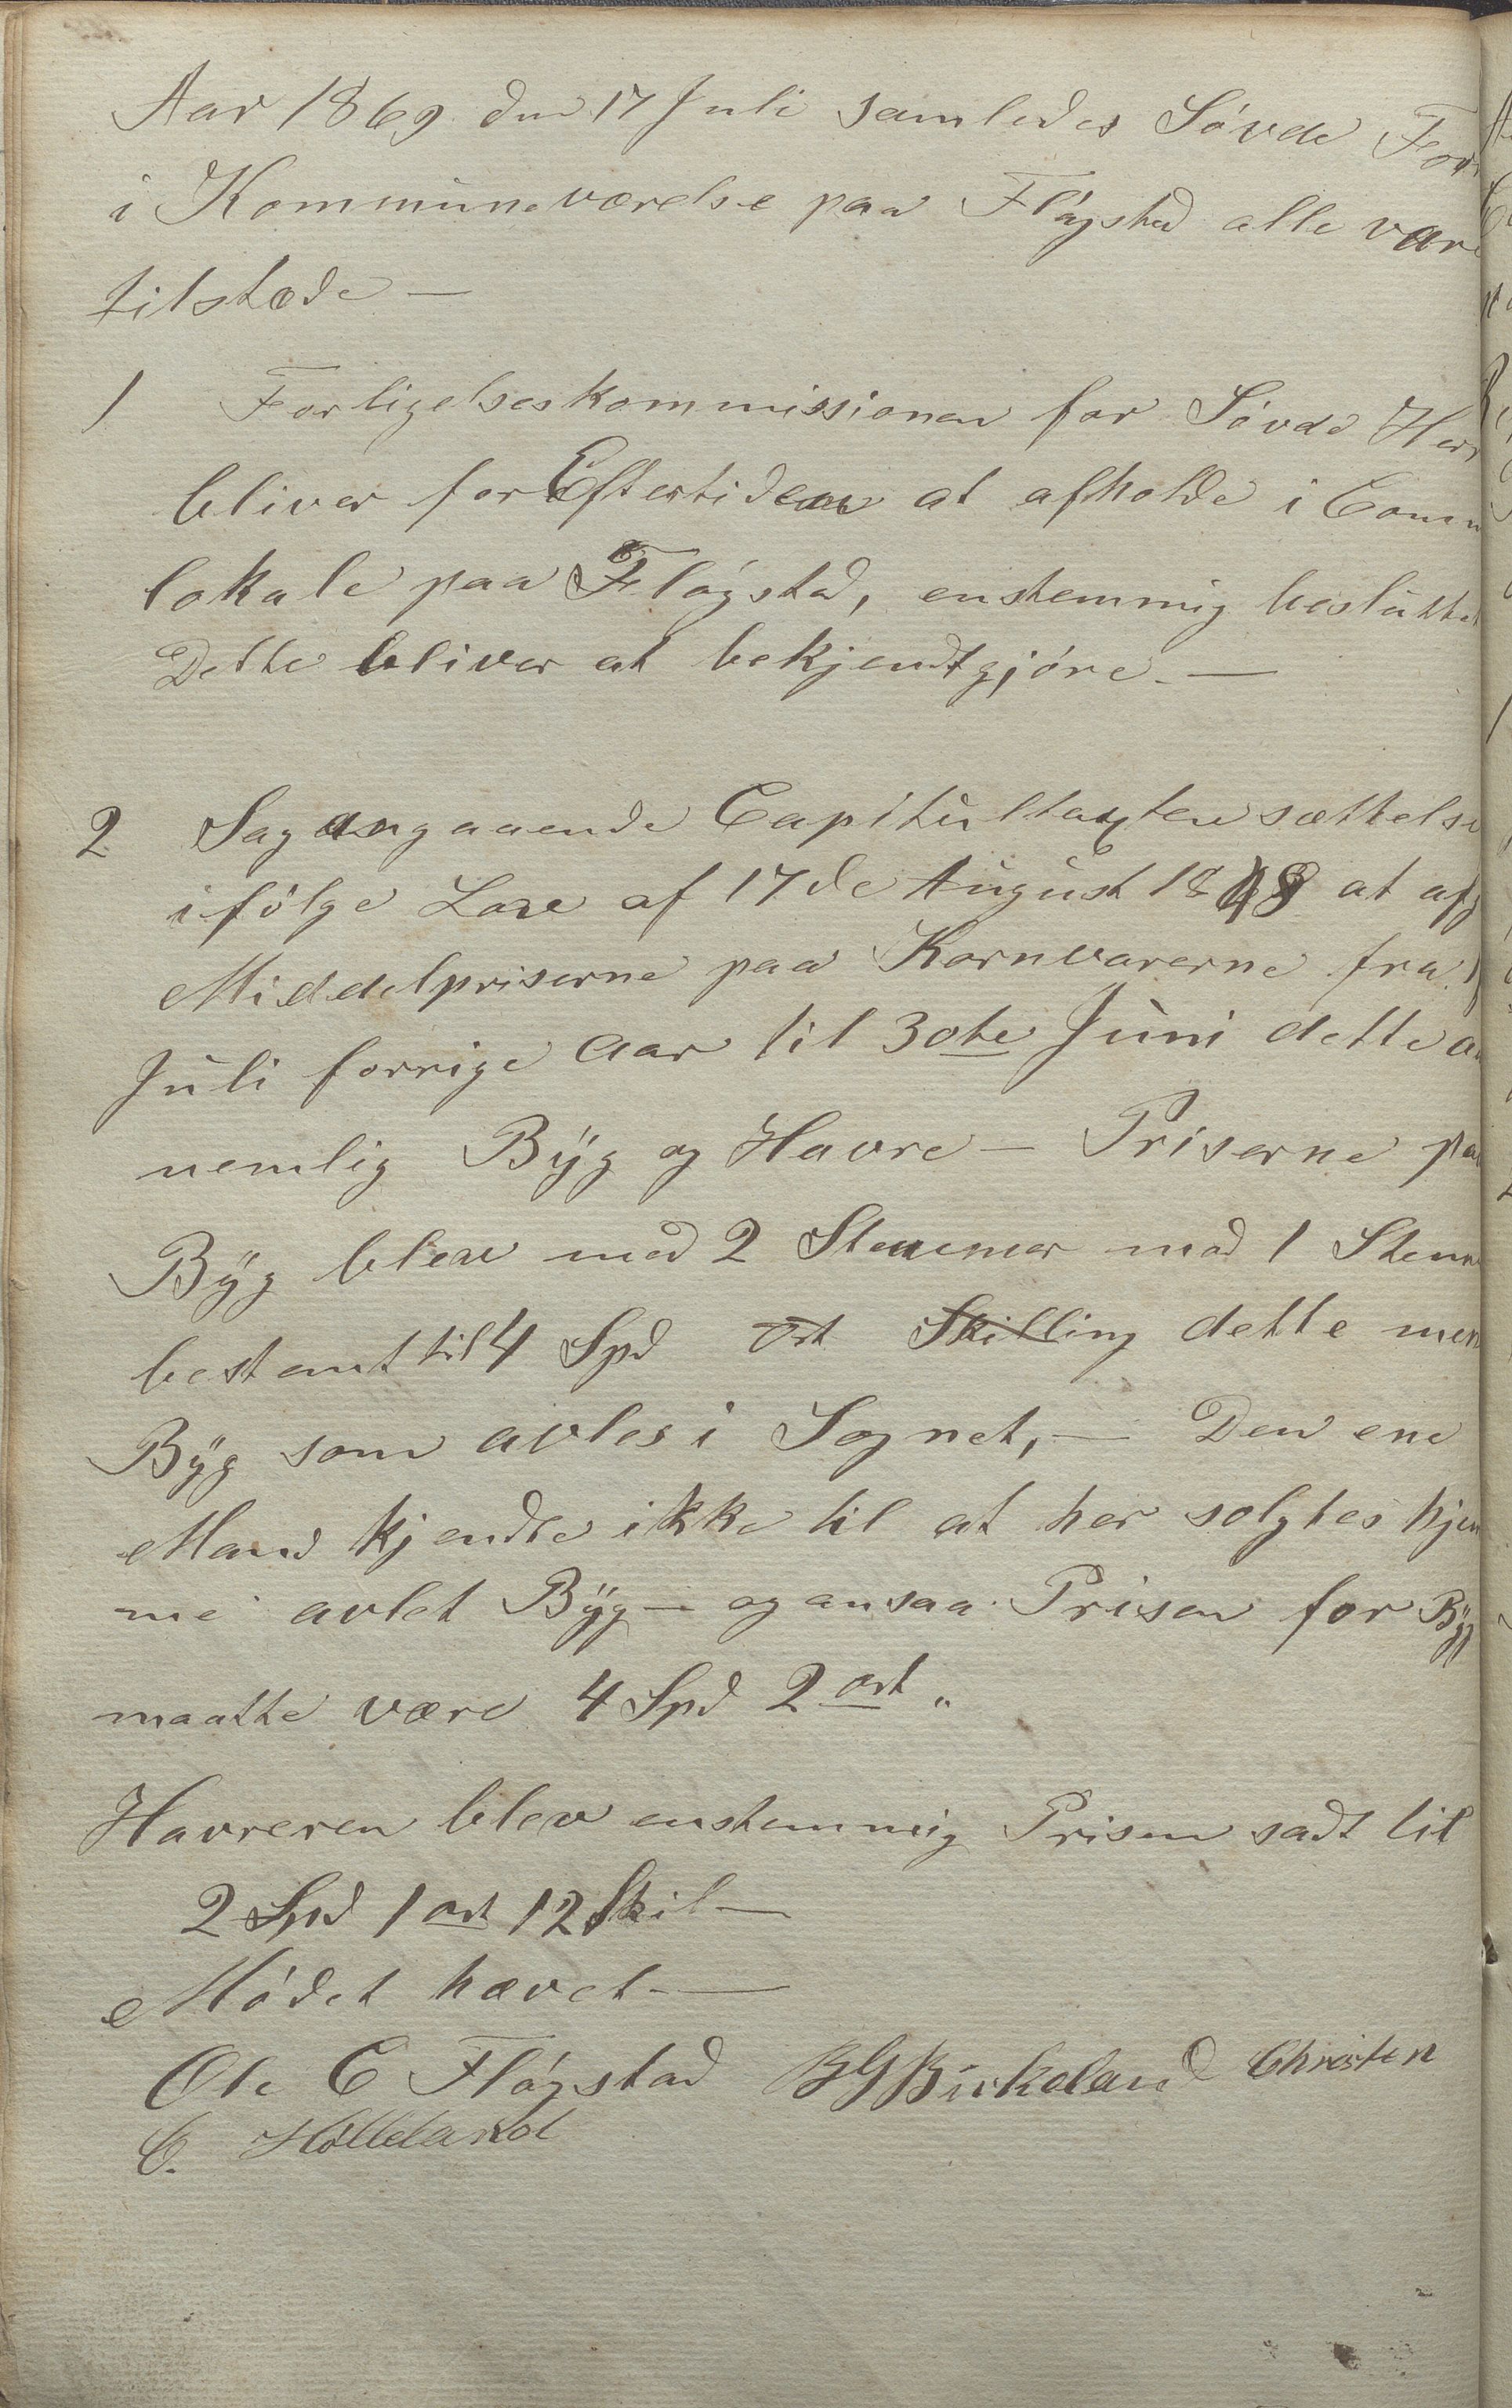 Aar 1869 den 17 Juli samledes Søvde For
i Kommuneværelse paa Fløgstad alle vare
tilstæde —
1 Forligelseskommissionen for Søvde Her
bliver for Eftertiden at afholde i Comm
lokale paa Fløgstad, enstemmig besluttet
Dette bliver at bekjendtgjøre. —
2 Sag angaaende Capitultaxten sættelse
ifølge Lov af 17de August 1848 at afg
Middelpriserne paa Kornvarerne fra 1
Juli forrige Aar til 30te Juni dette a
nemlig Byg og Havre — Priserne paa
Byg blev med 2 Stemmer mod 1 Stemm
bestemt til 4 Spd ort Skilling dette men
Byg som avles i Sognet, — Den ene
Mand kjendte ikke til at her solgtes hjem
me avlet Byg — og ansaa Prisen for Byg
maatte være 4 Spd 2 ort „
Havreren blev enstemmig Prisen sadt til
2 Spd 1 ort 12 Skil —
Mødet hævet. —
Ole C Fløgstad BGBirkeland Christen
C. Hølleland